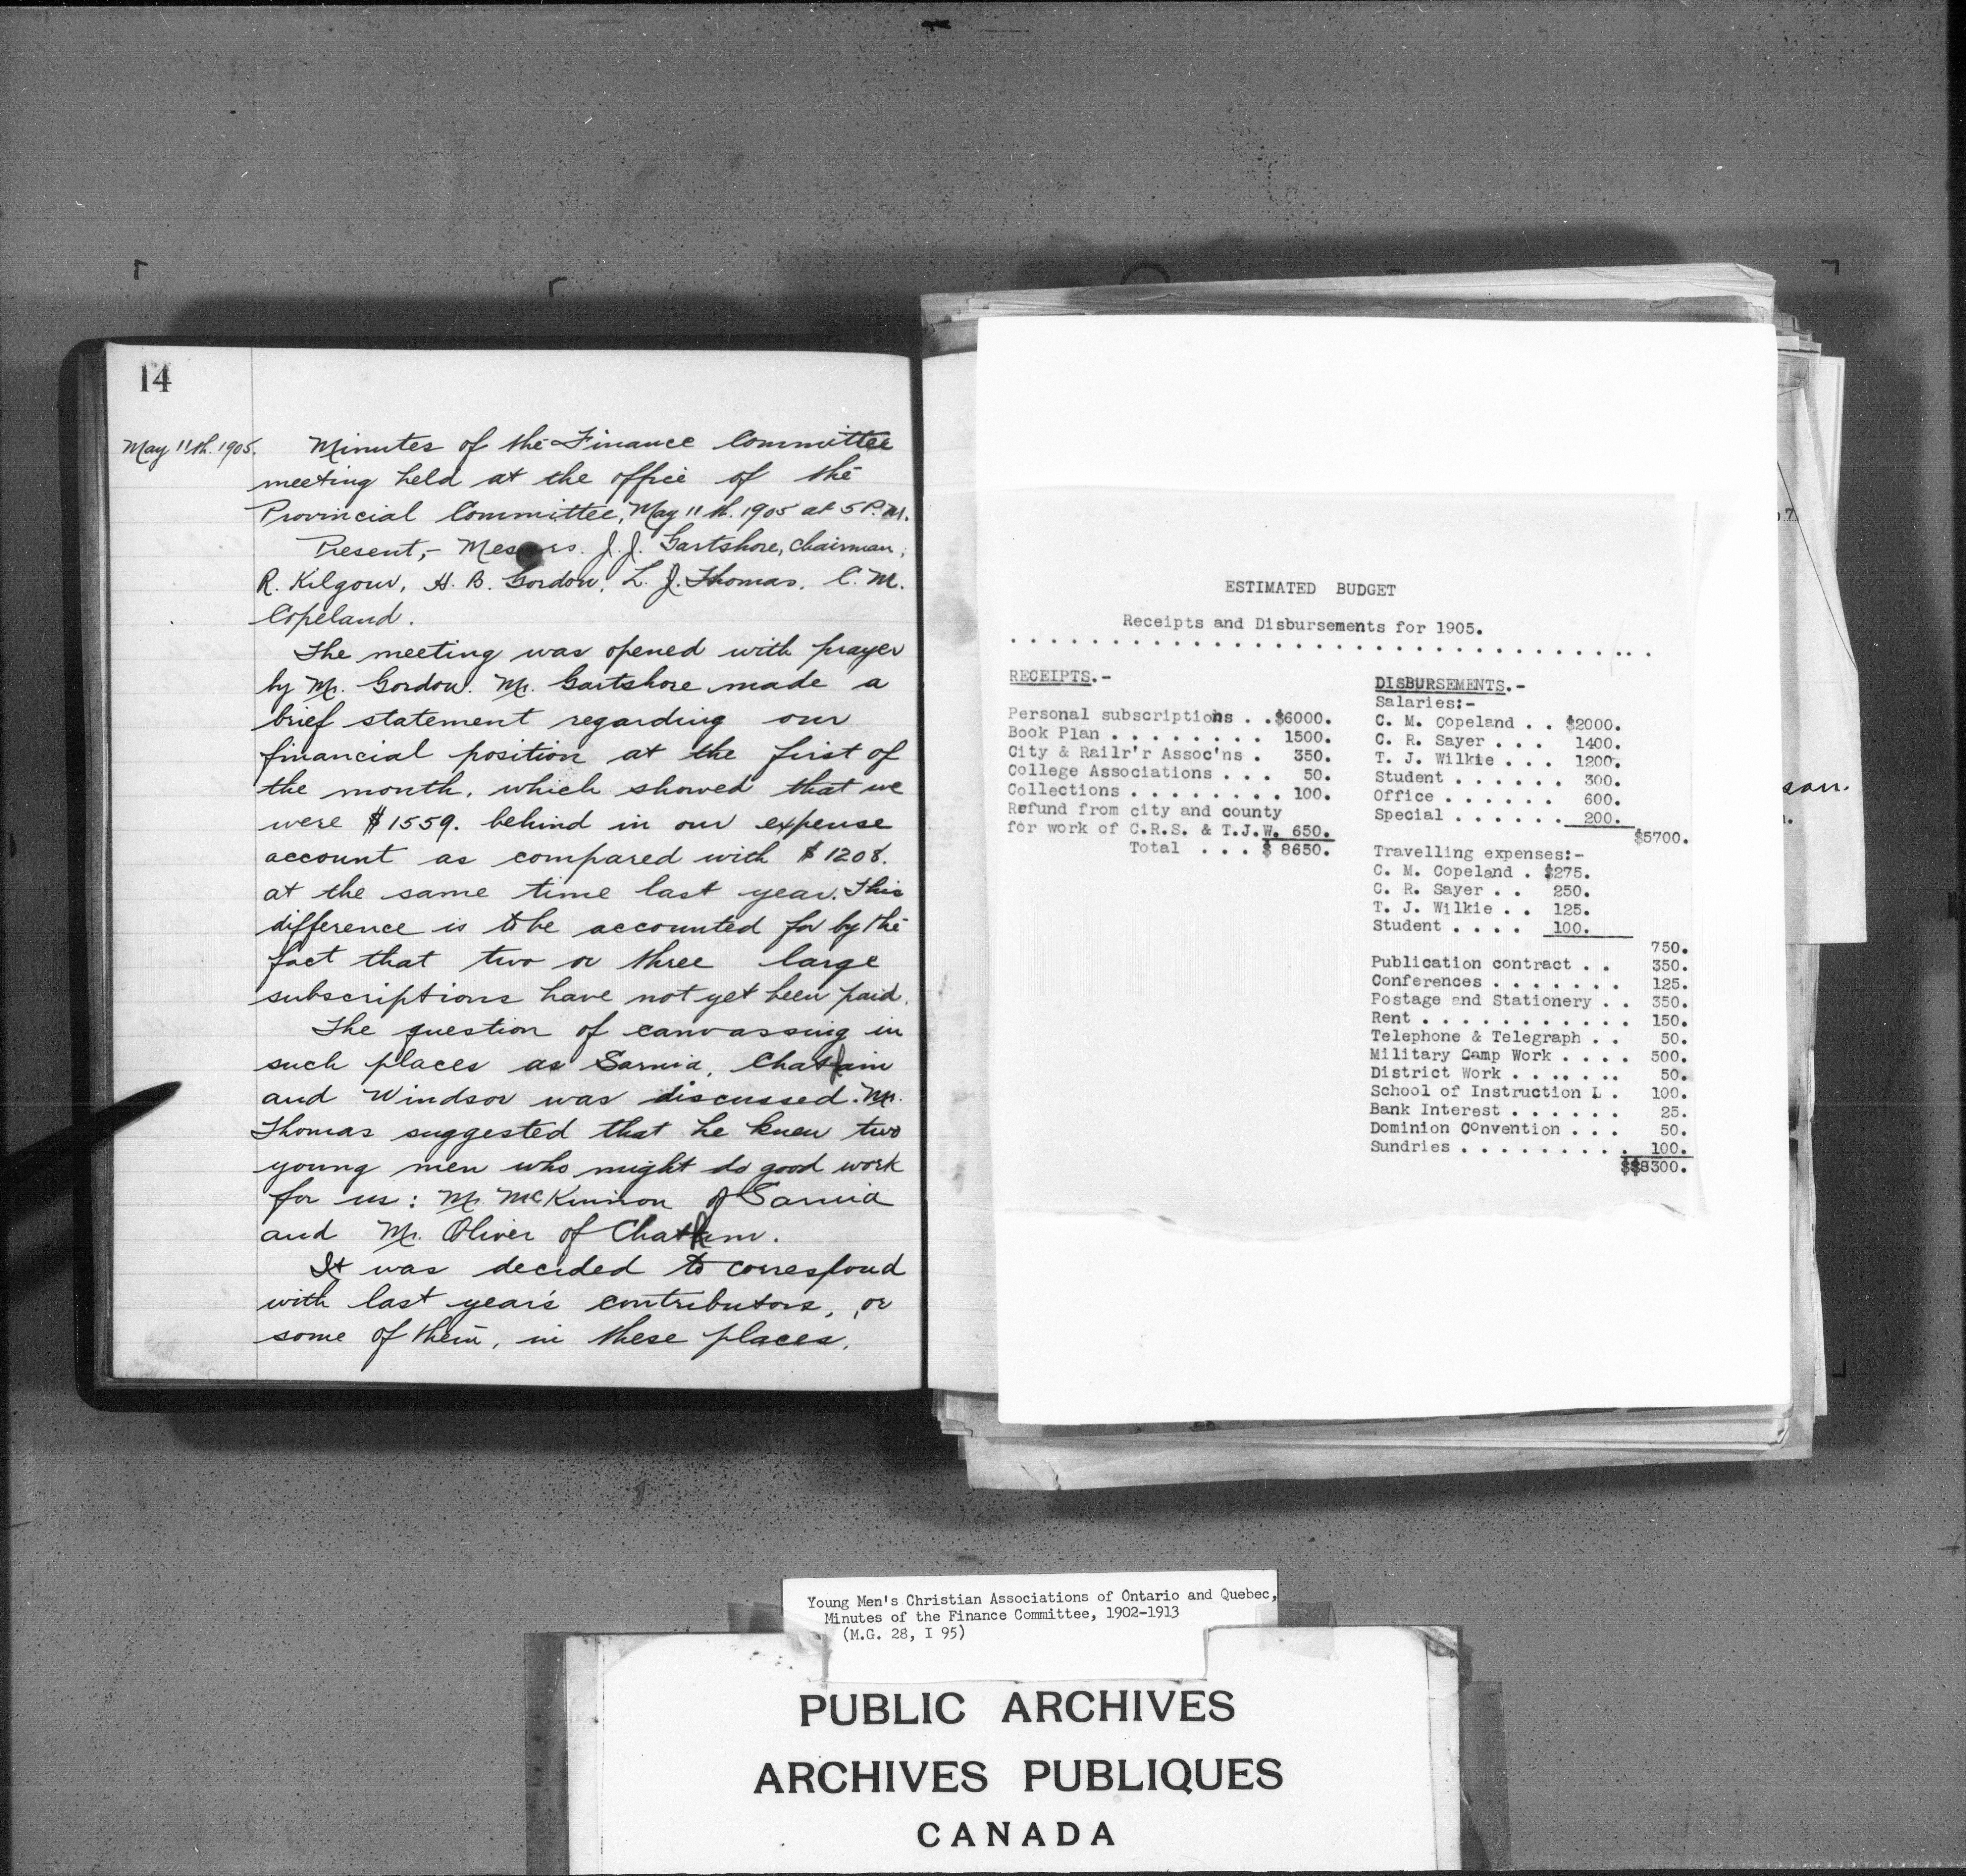 14
May 11th. 1905.
Minutes of the Finance Committee
meeting held at the office of the
Provincial Committee, May 11th. 1905 at 5 P.M.
Present,- Messrs. J. J. Gartshore, Chairman,
R. Kilgour, H. B. Gordon, L. J. Thomas, C. M.
Copeland.
The meeting was opened with prayer
by Mr. Gordon. Mr. Gartshore made a
brief statement regarding our
financial position at the first of
the month, which showed that we
were $1559. behind in our expense
account as compared with $1208.
at the same time last year. This
difference is to be accounted for by the
fact that two or three large
subscriptions have not yet been paid.
The question of canvassing in
such places as Sarnia, Chatham
and Windsor was discussed. Mr.
Thomas suggested that he knew two
young men who might do good work
for us: Mr. McKinnon of Sarnia
and Mr. Oliver of Chatham.
It was decided to correspond
with last year's contributors, or
some of them, in these places.
ESTIMATED BUDGET
Receipts and Disbursements for 1905.
RECEIPTS.-
Personal subscriptions . . $6000.
Book Plan . . . . . . . . 1500.
City & Railr'r Assoc'ns . 350.
College Associations . . . 50.
Collections . . . . . . . . 100.
Refund from city and county
for work of C.R.S. & T.J.W. 650.
Total . . . $ 8650.
DISBURSEMENTS.-
Salaries:-
C. M. Copeland . . $2000.
C. R. Sayer . . . 1400.
T. J. Wilkie . . . 1200.
Student . . . . . . 300.
Office . . . . . . 600.
Special . . . . . . 200.
$5700.
Travelling expenses:-
C. M. Copeland . $275.
C. R. Sayer . . 250.
T. J. Wilkie . . 125.
Student . . . . 100.
750.
Publication contract . . 350.
Conferences . . . . . . . 125.
Postage and Stationery . . 350.
Rent . . . . . . . . . . . 150.
Telephone & Telegraph . . 50.
Military Camp Work . . . . 500.
District Work . . . . . . . 50.
School of Instruction L . 100.
Bank Interest . . . . . . 25.
Dominion Convention . . . 50.
Sundries . . . . . . . . . 100.
$$8300.
Young Men's Christian Associations of Ontario and Quebec,
Minutes of the Finance Committee, 1902-1913
(M.G. 28, I 95)
PUBLIC ARCHIVES
ARCHIVES PUBLIQUES
CANADA